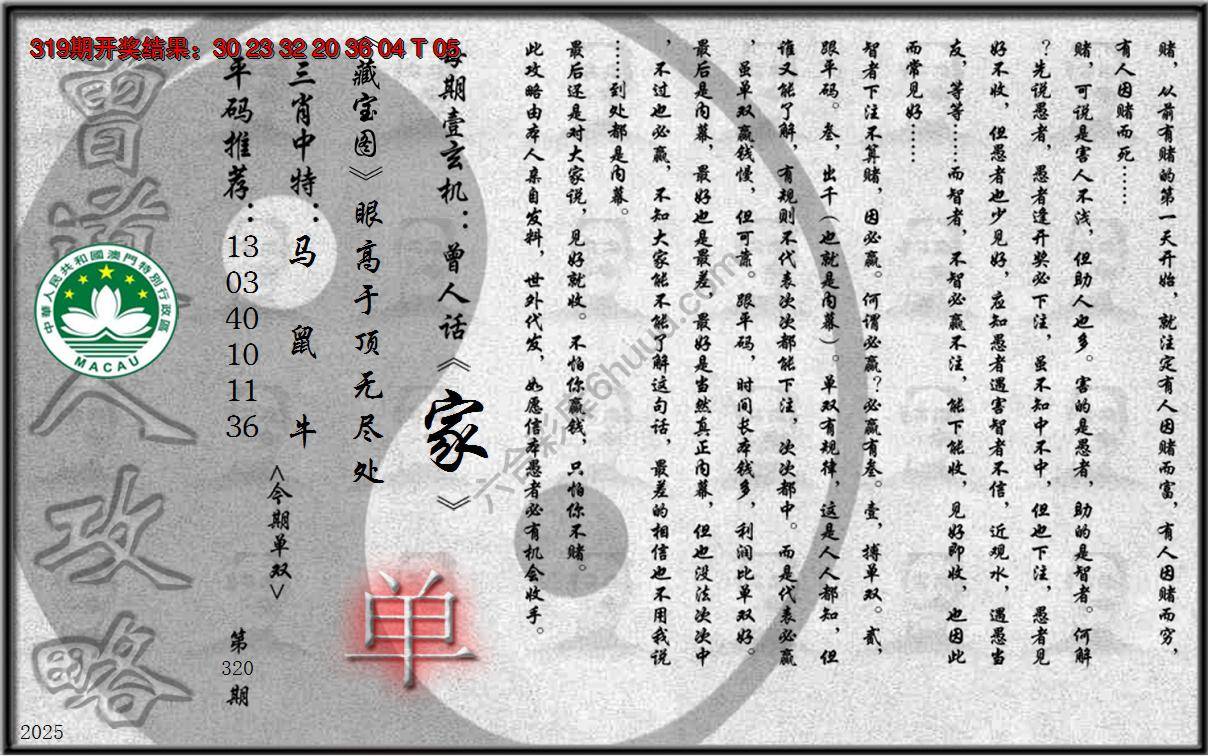 319期开奖结果：30 23 32 20 36 04 T 05
赌，从前有赌的第一天开始，就注定有人因赌而富，有人因赌而穷，
有人因赌而死……
赌，可说是害人不浅，但助人也多。害的是愚者，助的是智者。何解
？先说愚者，愚者逢开奖必下注，虽不知中不中，但也下注，愚者见
好不收，但愚者也少见好，应知愚者遇害智者不信，近观水，遇愚当
友，等等……而智者，不智必赢不注，能下能收，见好即收，也因此
而常见好……
智者下注不算赌，因必赢。何谓必赢？必赢有叁。壹，搏单双。贰，
跟平码。叁，出千（也就是内幕）。单双有规律，这是人人都知，但
谁又能了解，有规则不代表次次都能下注，次次都中。而是代表必赢
，虽单双赢钱慢，但可靠。跟平码，时间长本钱多，利润比单双好。
最后是内幕，最好也是最差，最好是当然真正内幕，但也没法次次中
，不过也必赢，不知大家能不能了解这句话，最差的相信也不用我说
……到处都是内幕。
最后还是对大家说，见好就收。不怕你赢钱，只怕你不赌。
此攻略由本人亲自发料，世外代发，如愿信本愚者必有机会收手。
每期壹玄机：曾人话《家》
《藏宝图》眼高于顶无尽处
三肖中特：马 鼠 牛
平码推荐：13 03 40 10 11 36
<今期单双>
单
第320期
曾道人攻略
中華人民共和國澳門特別行政區
MACAU
六合彩库6huuu.com
2025